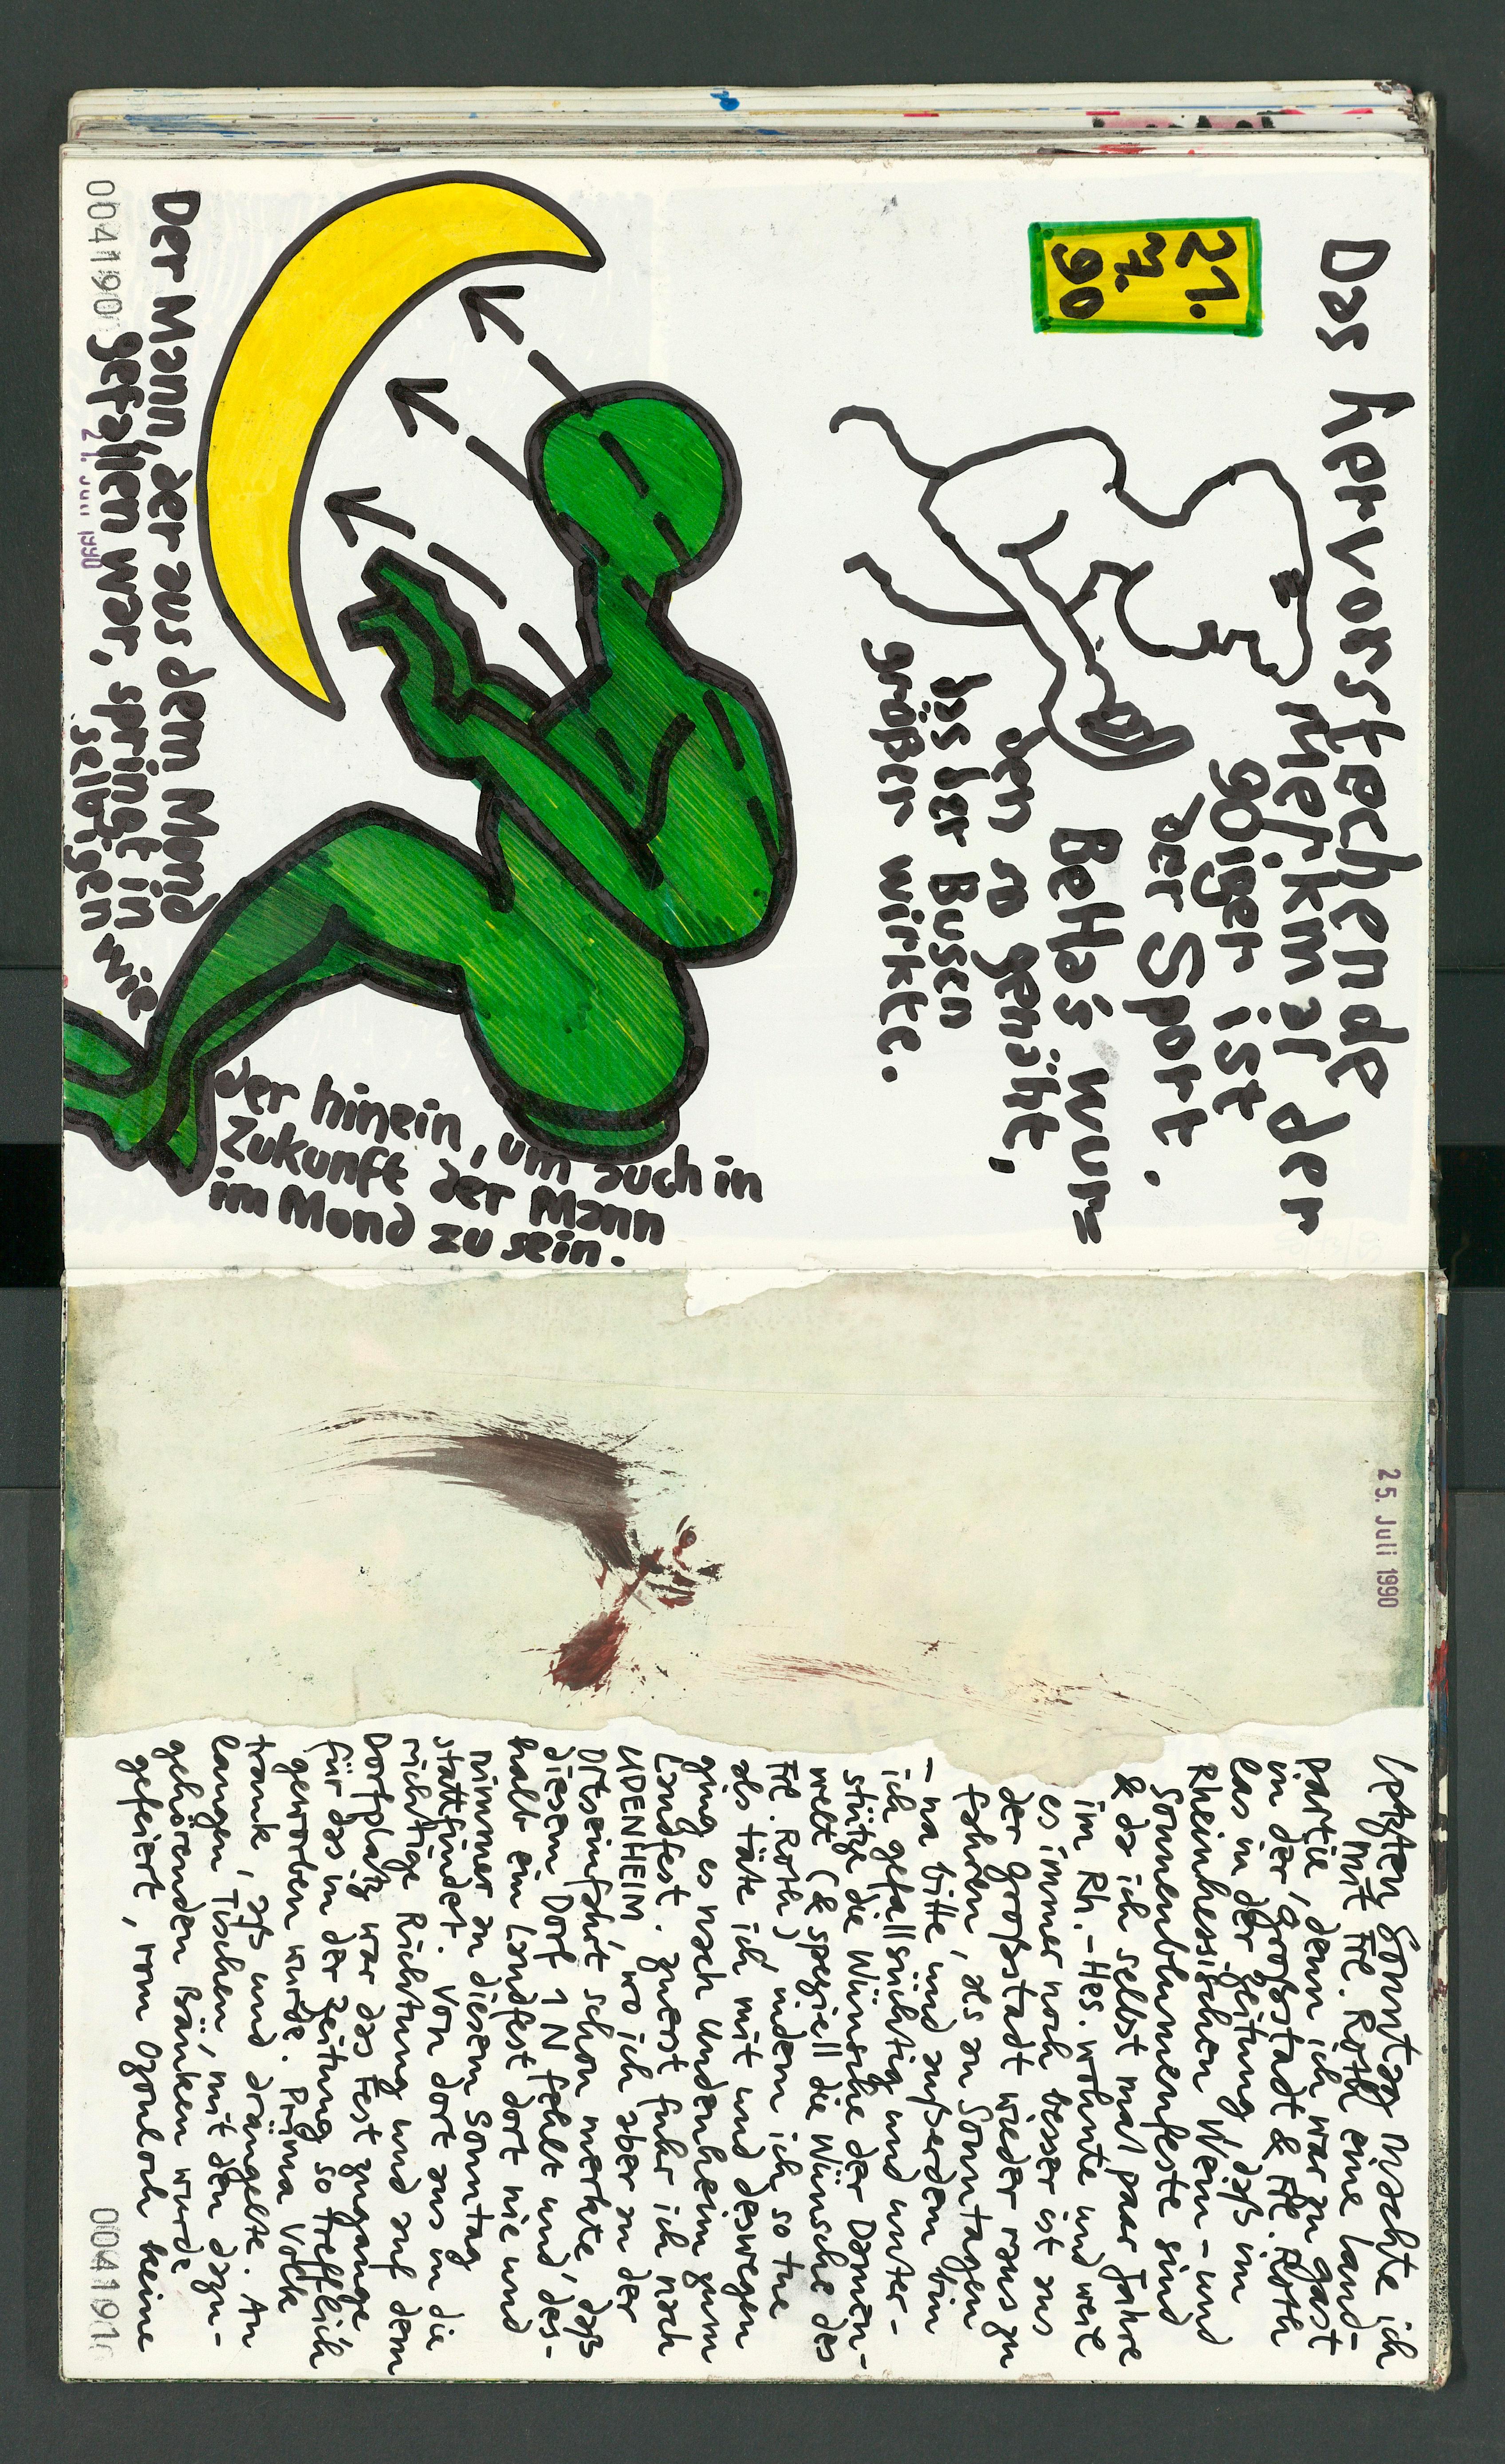 Das hervorstechende
Merkmal der
90iger ist
der Sport.
BeHa's wur=
den so genäht,
das der Busen
größer wirkte.
21.
7.
90
Der Mann, der aus dem Mond
gefallen war, springt in
selbigen wie
der hinein, um auch in
Zukunft der Mann
im Mond zu sein.
21. Juli 1990
004190
25. Juli 1990
Letzten Sonntag machte ich
mit Frl. Roth eine Land-
partie, denn ich war zu gast
in der Großstadt & Frl. Roth
las in der Zeitung, daß im
Rheinhessischen Wein- und
Sonnenblumenfeste sind
& da ich selbst mal paar Jahre
im Rh.-Hes. wohnte und weil
es immer noch besser ist aus
der Großstadt wieder raus zu
fahren, als an Sonntagen
- na bitte, und außerdem bin
ich gefallsüchtig und unter-
stütze die Wünsche der Damen-
welt (& speziell die Wünsche des
Frl. Roth) indem ich so tue
als täte ich mit und deswegen
ging es nach Undenheim zum
Landfest. Zuerst fuhr ich nach
UDENHEIM, wo ich aber an der
Ortseinfahrt schon merkte, daß
diesem Dorf 1 N fehlt und des-
halb ein Landfest dort nie und
nimmer an diesem Sonntag
stattfindet. Von dort aus in die
richtige Richtung und auf dem
Dorfplatz war das Fest zugange
für das in der Zeitung so trefflich
geworben wurde. Prima Volk
trank, aß und drängelte. An
langen Tischen, mit den dazu-
gehörenden Bänken wurde
gefeiert, vom Ozonloch keine
004191